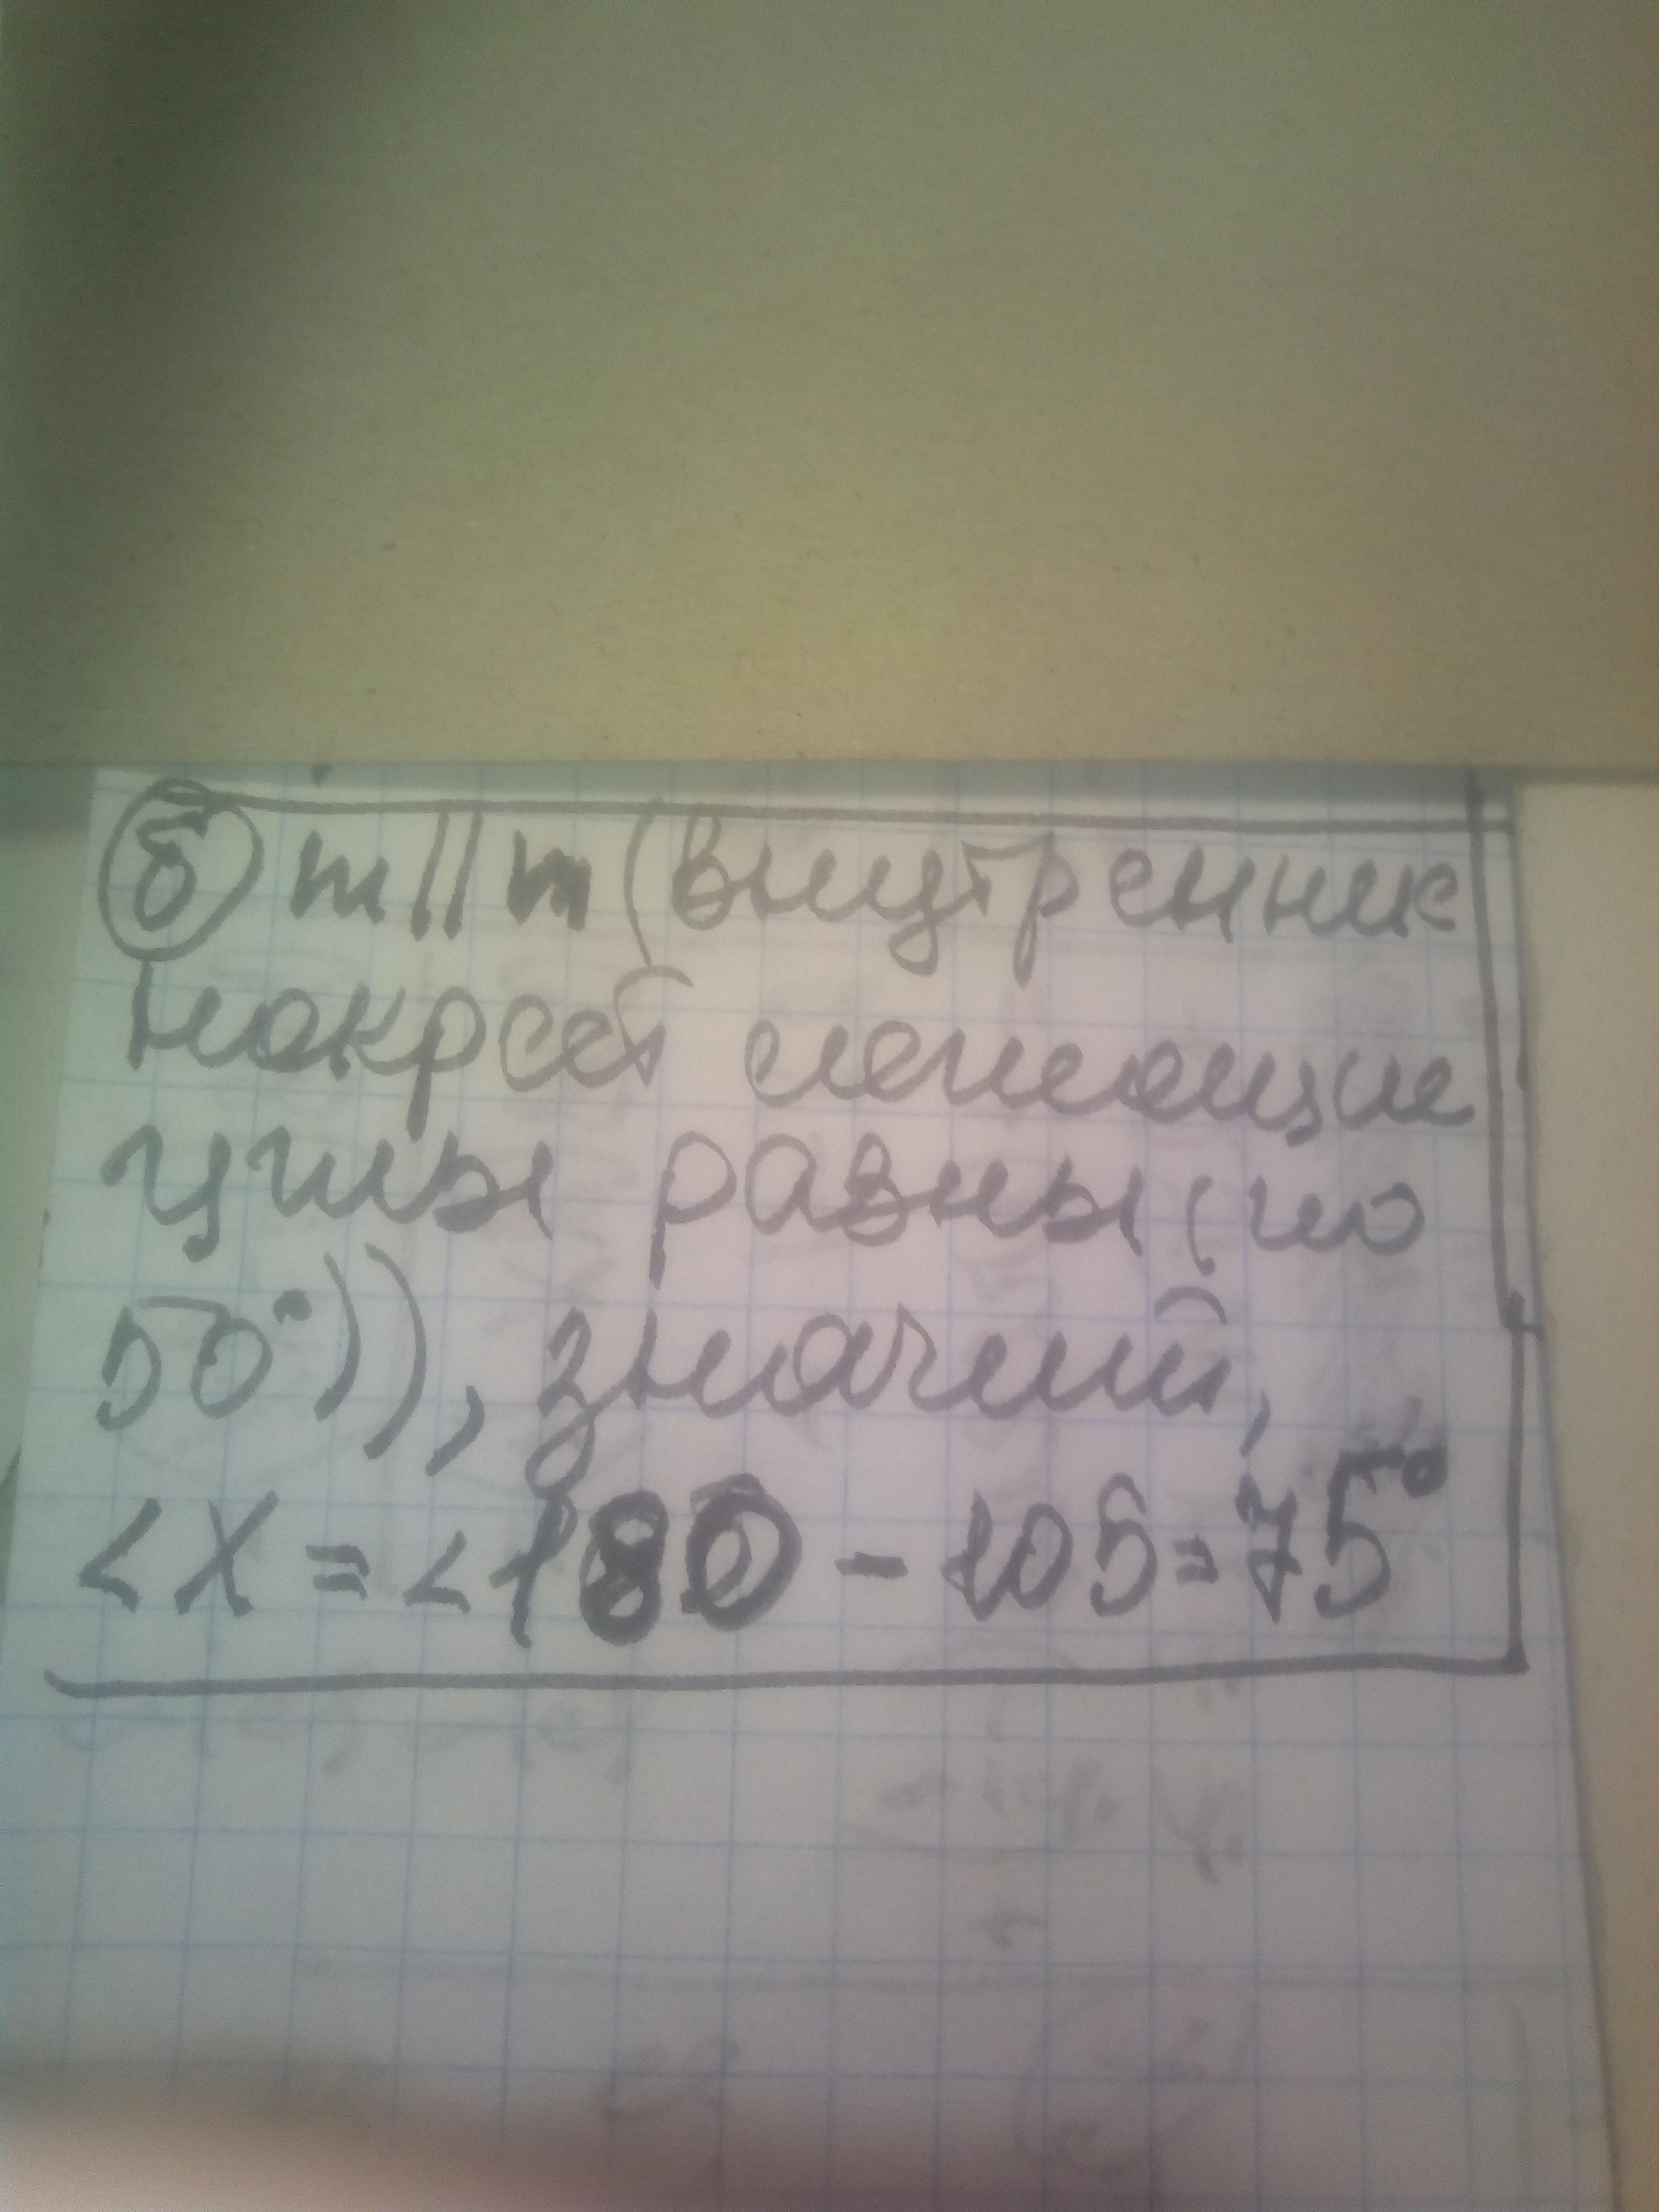 б) m || m (внутренние
накрест лежащие
углы равны (по
50°)), значит,
<X = <180 - 105 = 75°